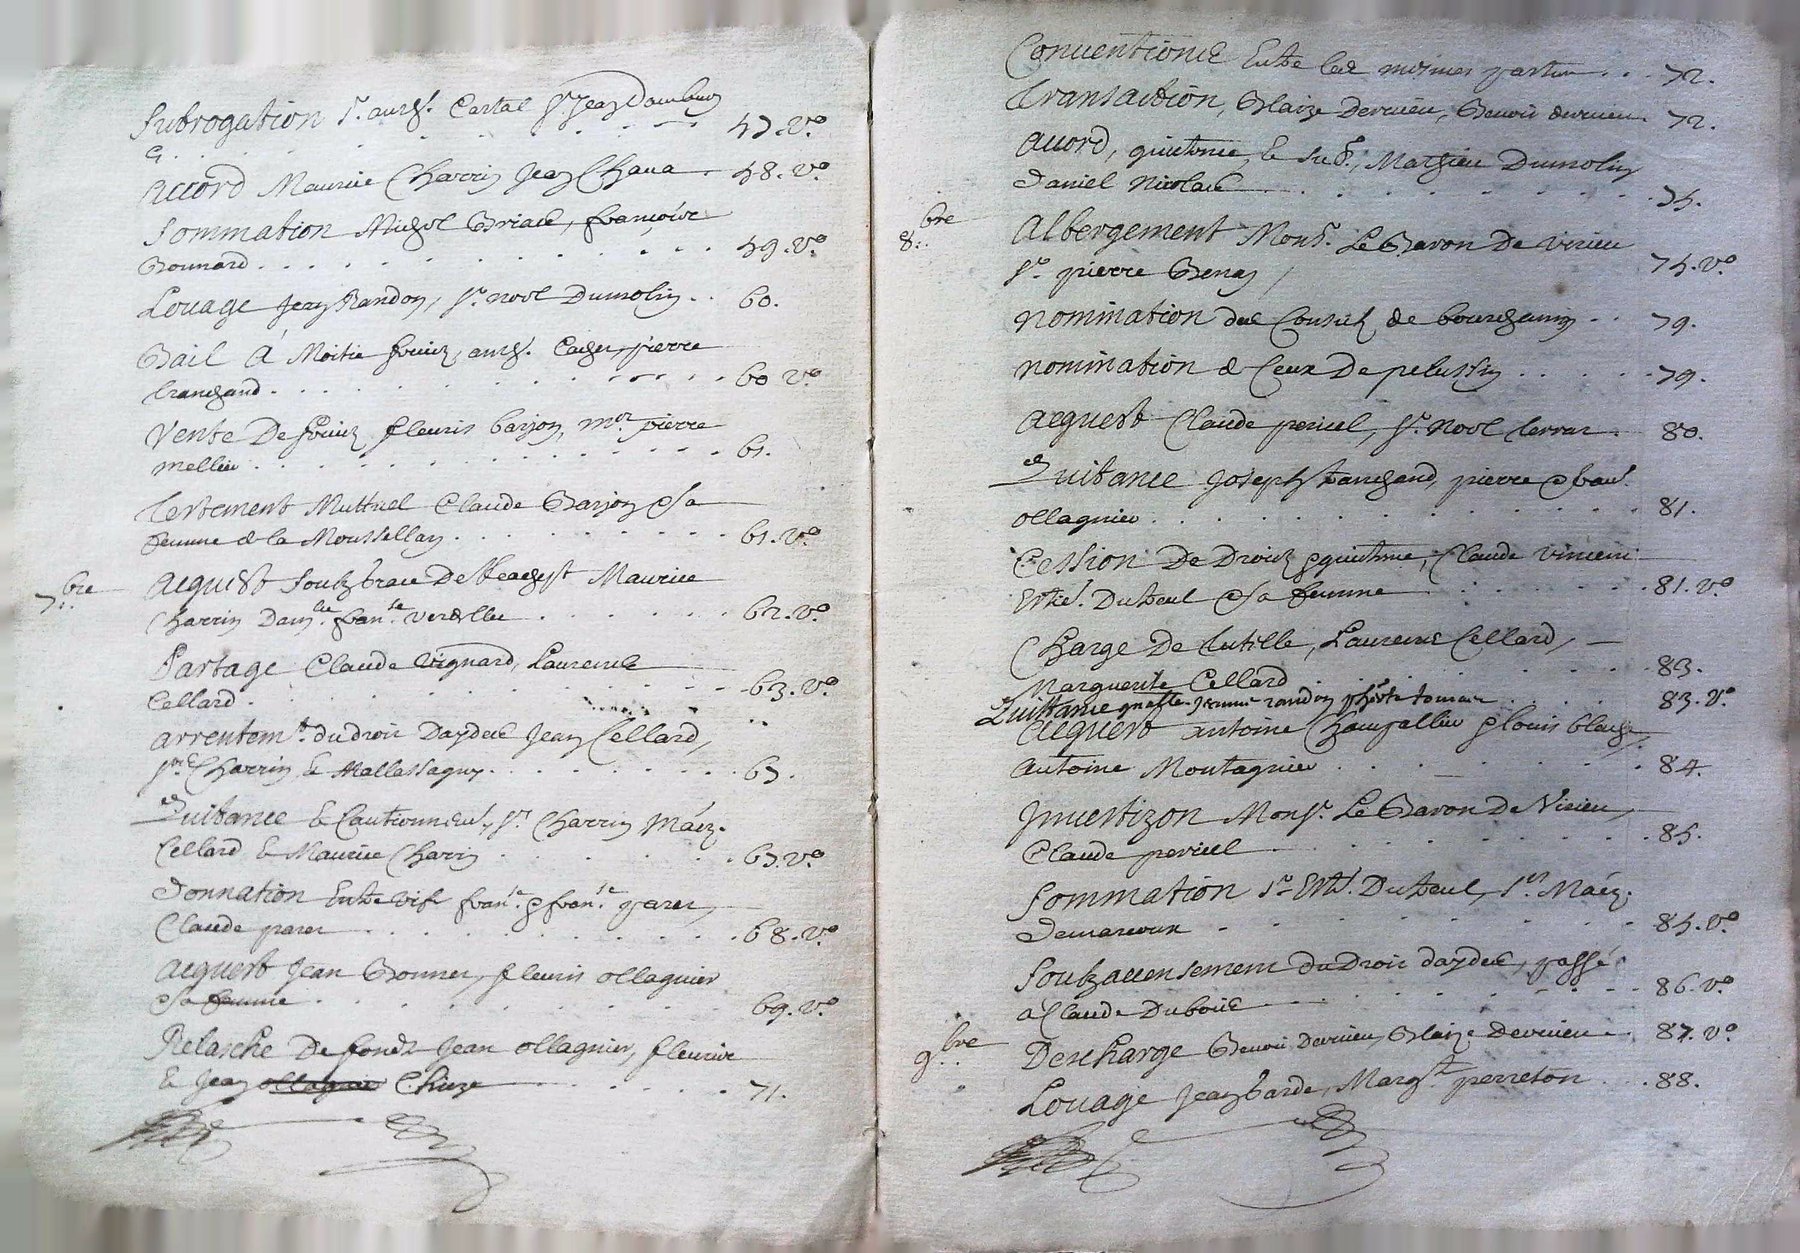 Subrogation Sr. Cartal Sr Jean
57. vo
Accord Maurice Charrin Jean Chaua . 58. vo
Sommation Michel Briace, françoise
Bonnard . . . . 59. vo
Louage Jean Randon, Sr. noel Dumolin . . 60.
Bail A Moitie fruicz, pierre
tranchand . . . . 60 vo
Vente De fruicz fleuris barjon, mer pierre
mellier . . . . 61.
Testement Muttuel Claude Barjon & sa
femme de la Moussellan . . . . 61. vo
7bre
Acquest Maurice
Charrin . . . . 62. vo
Partage Claude Vignard, Laurence
Cellard . . . . 63. vo
Arrentemt. du droit Daydes Jean Cellard,
Charrin & Mallassagny . . . . 67.
Quitance & Cautionnemt, Sr. Charrin
Cellard & Maurice Charin . . . . 67. vo
Donnation Entre vifs franse. & franse. parer,
Claude parer . . . . 68. vo
Acquest Jean Bonner, fleuris ollagnier
& sa femme . . . . 69. vo
Relasche De fondz Jean ollagnier, fleurie
& Jean Chieze . . . . 71.
Conuentions Entre les mesmes parties . . . 72.
Transaction, Blaize Deruieu, Benoit deruieu . 72.
Accord, quictance, & Mathieu Dumolin
Daniel Nicolas . . . . 75.
8bre
Albergement Monsr. Le Baron De Virieu
Sr. pierre Benay 75. vo
Nomination des Consulz de bourchanin . . 79.
Nomination de Ceux De pelussin . . . . 79.
Acquest Claude pericel, Sr. noel terrar . 80.
Quitance Joseph tranchand, pierre &
ollagnier . . . . 81.
Cession De Droicz & quictance, Claude vincent
Duteul & sa femme . . . . 81. vo
Charge De tutelle, Laurence Cellard,
Marguerite Cellard . . . . 83.
Quittance Jeanne randon . . . . 83. vo
Acquest antoine Champallier & louis
Antoine Montagnier . . . . 84.
Jnuestizon Monsr. Le Baron De Virieu,
Claude pericel . . . . 85.
Sommation Sr Duteul,
Demarcoux . . . . 85. vo
Soubzaccensement du Droit daydes, passé
a Claude Dubois . . . . 86. vo
9bre
Descharge Benoit Deruieu, Blaize Deruieu . 87. vo
Louage Jean tarde, Margte. perreton . . . 88.